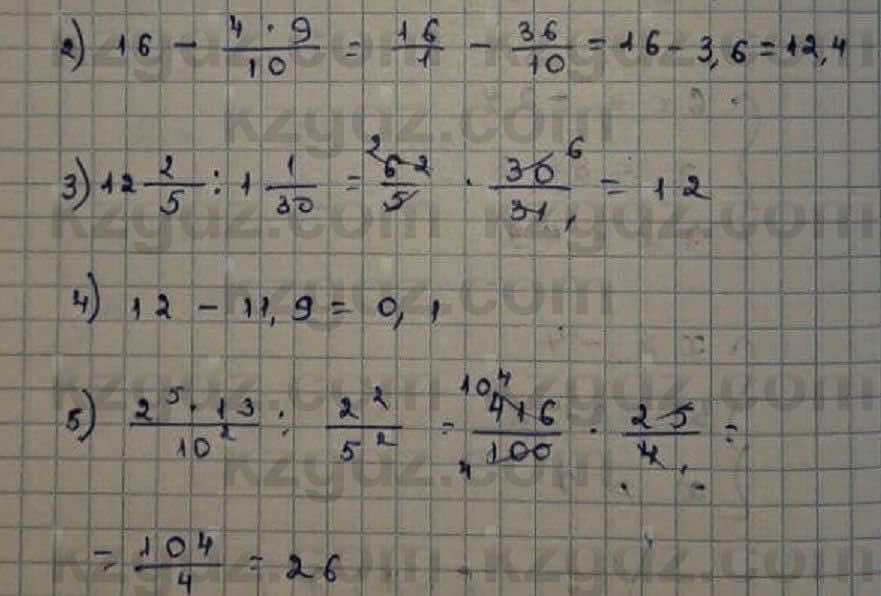 2) 16 - 4 · 9 / 10 = 16 / 1 - 36 / 10 = 16 - 3,6 = 12,4
3) 12 2/5 : 1 1/30 = 62 / 5 · 30 / 31 = 12
4) 12 - 11,9 = 0,1
5) 2⁵ · 13 / 10² : 2² / 5² = 416 / 100 · 25 / 4 =
= 104 / 4 = 26
kzgdz.com